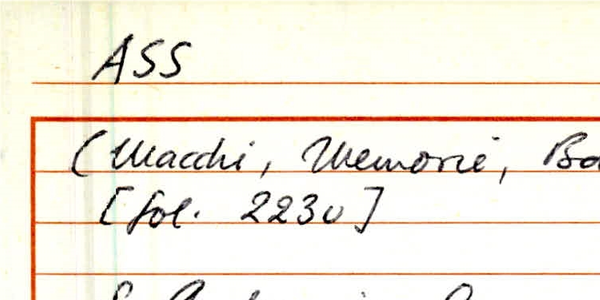 ASS
(Macchi, Memorie,
[fol. 223v]